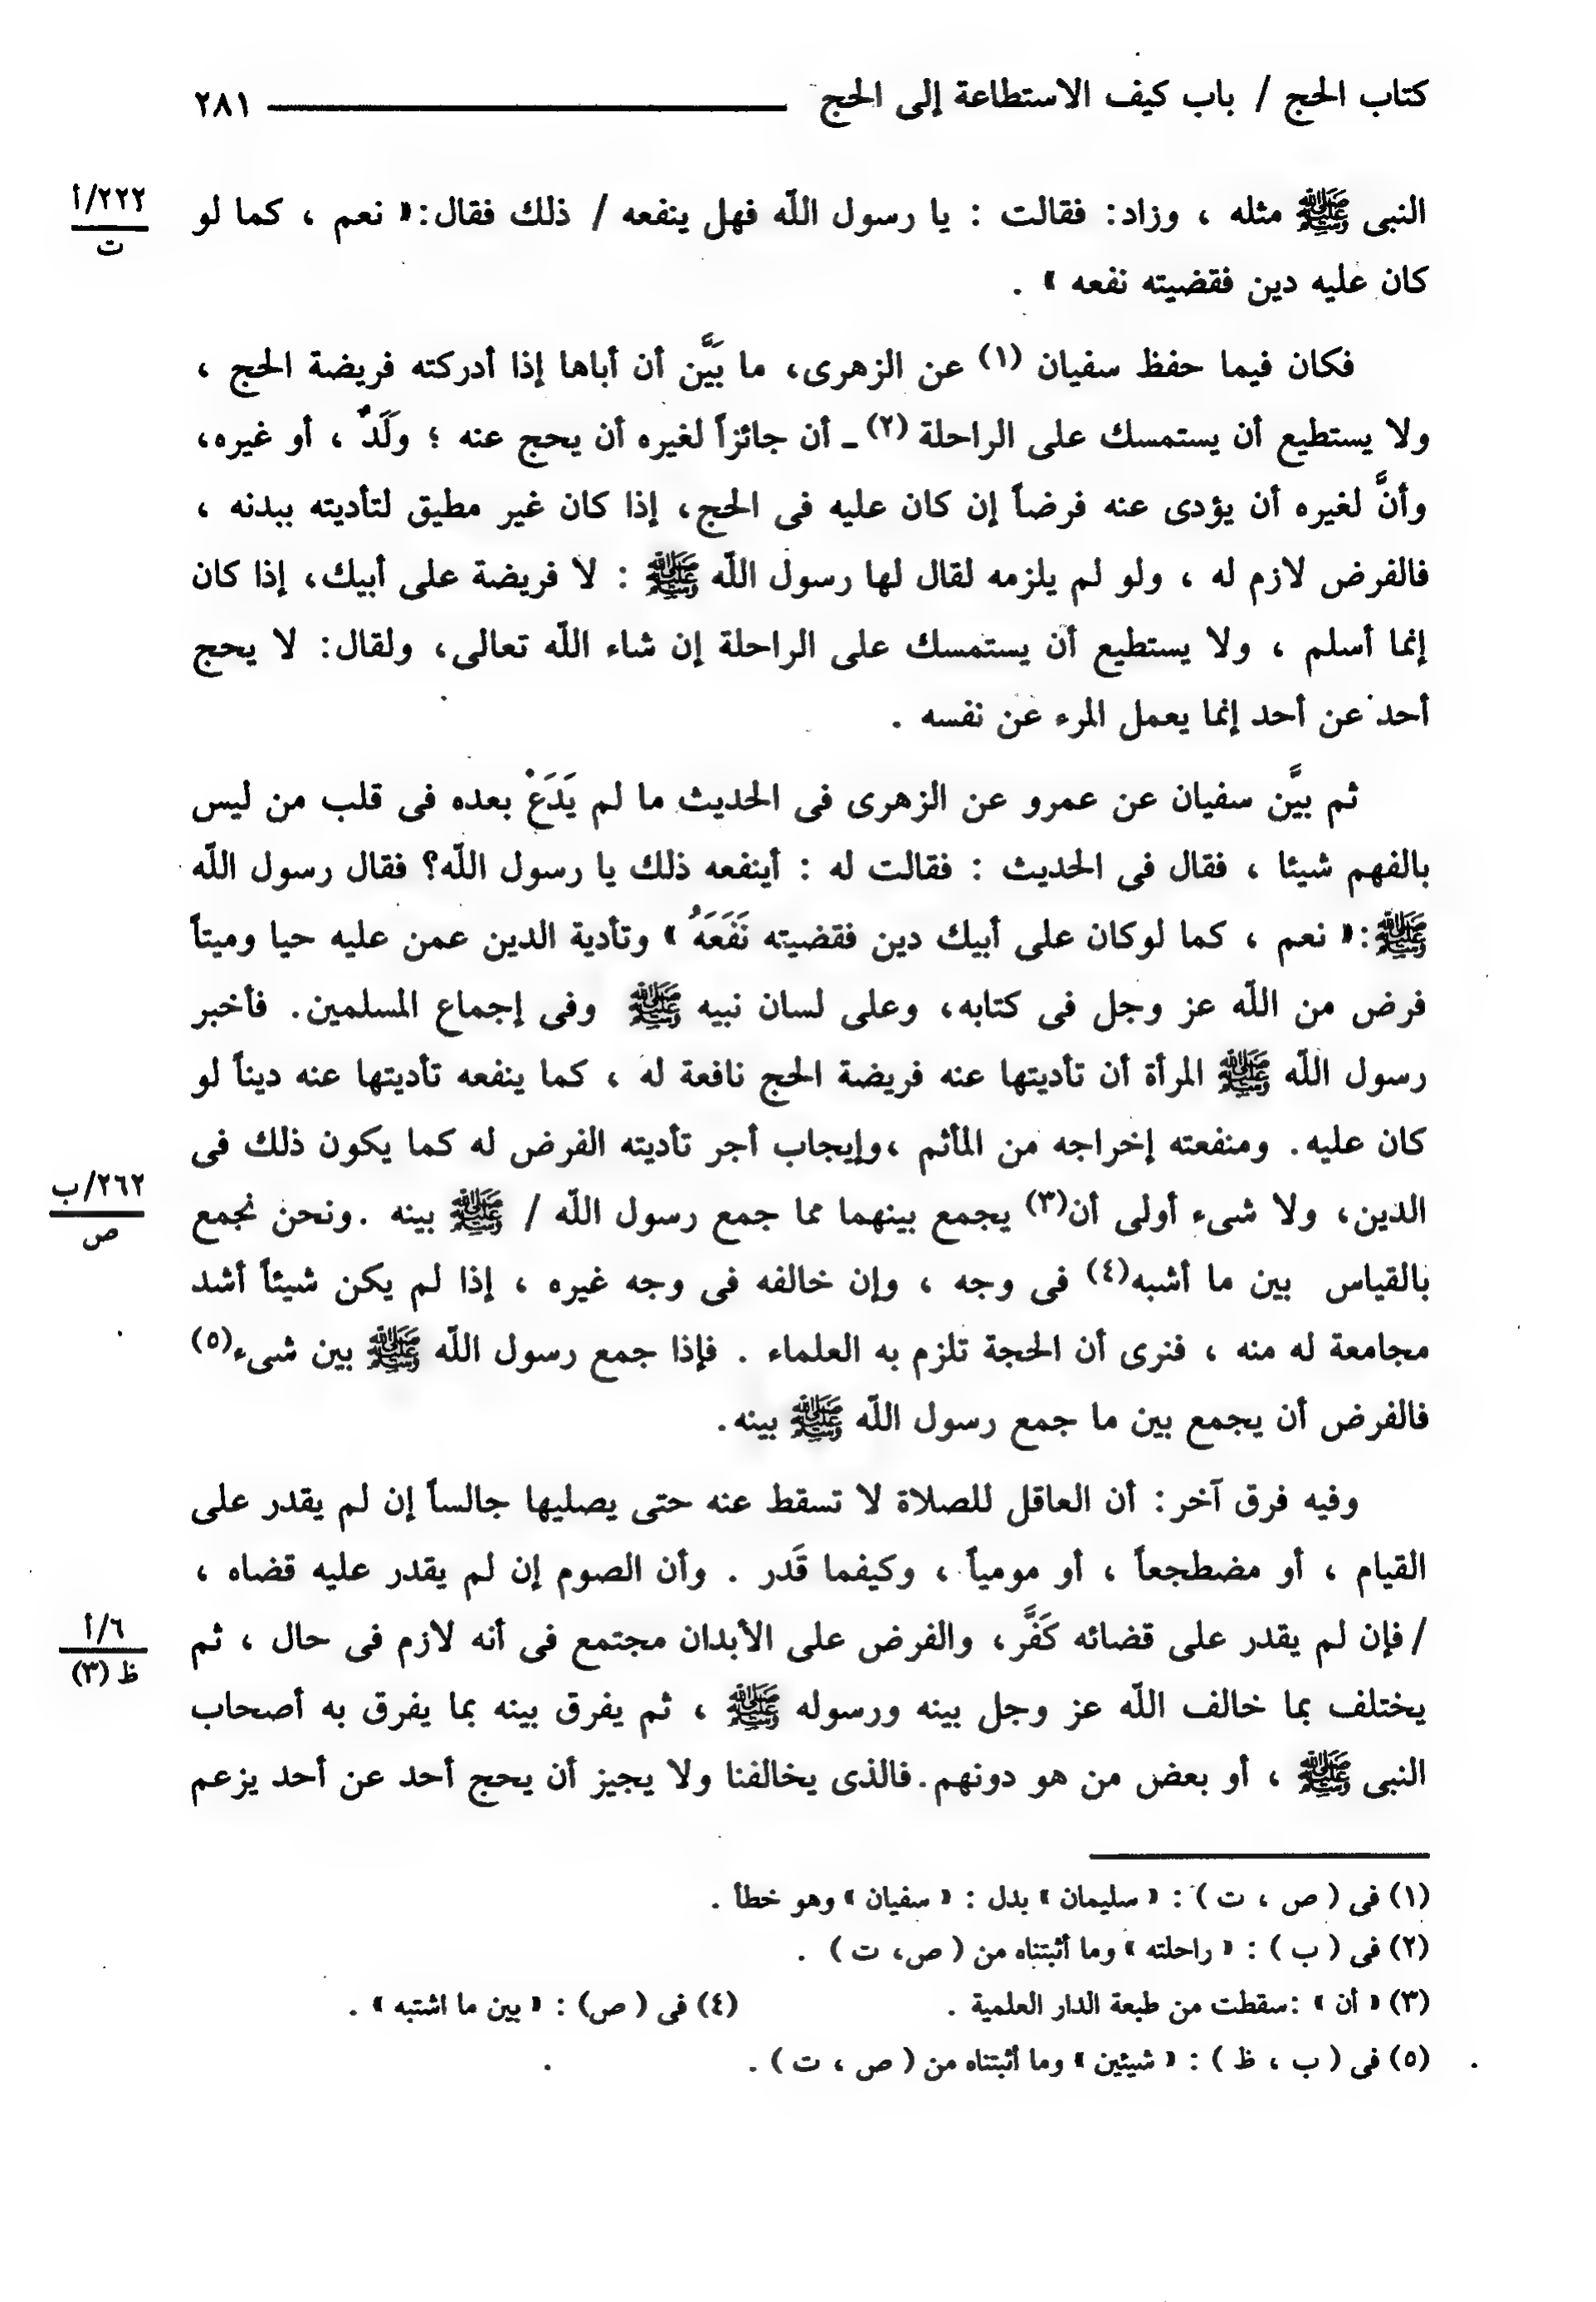 كتاب الحج / باب كيف الاستطاعة إلى الحج ٢٨١
النبى ﷺ مثله ، وزاد: فقالت : يا رسول اللّه فهل ينفعه / ذلك فقال:« نعم ، كما لو
٢٢٢/أ
ت
كان عليه دين فقضيته نفعه » .
فكان فيما حفظ سفيان (١) عن الزهرى، ما بَيَّن أن أباها إذا أدركته فريضة الحج ،
ولا يستطيع أن يستمسك على الراحلة (٢) ـ أن جائزاً لغيره أن يحج عنه ؛ ولَدٌ ، أو غيره،
وأنَّ لغيره أن يؤدى عنه فرضاً إن كان عليه فى الحج، إذا كان غير مطيق لتأديته ببدنه ،
فالفرض لازم له ، ولو لم يلزمه لقال لها رسول اللّه ﷺ : لا فريضة على أبيك، إذا كان
إنما أسلم ، ولا يستطيع أن يستمسك على الراحلة إن شاء اللّه تعالى، ولقال: لا يحج
أحد عن أحد إنما يعمل المرء عن نفسه .
ثم بيَّن سفيان عن عمرو عن الزهرى فى الحديث ما لم يَدَعْ بعده فى قلب من ليس
بالفهم شيئا ، فقال فى الحديث : فقالت له : أينفعه ذلك يا رسول اللّه؟ فقال رسول اللّه
ﷺ:« نعم ، كما لوكان على أبيك دين فقضيته نَفَعَهُ » وتأدية الدين عمن عليه حيا وميتاً
فرض من اللّه عز وجل فى كتابه، وعلى لسان نبيه ﷺ وفى إجماع المسلمين. فأخبر
رسول اللّه ﷺ المرأة أن تأديتها عنه فريضة الحج نافعة له ، كما ينفعه تأديتها عنه ديناً لو
كان عليه. ومنفعته إخراجه من المأثم ،وإيجاب أجر تأديته الفرض له كما يكون ذلك فى
الدين، ولا شىء أولى أن(٣) يجمع بينهما مما جمع رسول اللّه / ﷺ بينه .ونحن نجمع
٢٦٢/ب
ص
بالقياس بين ما أشبه(٤) فى وجه ، وإن خالفه فى وجه غيره ، إذا لم يكن شيئاً أشد
مجامعة له منه ، فنرى أن الحجة تلزم به العلماء . فإذا جمع رسول اللّه ﷺ بين شىء(٥)
فالفرض أن يجمع بين ما جمع رسول اللّه ﷺ بينه.
وفيه فرق آخر: أن العاقل للصلاة لا تسقط عنه حتى يصليها جالساً إن لم يقدر على
القيام ، أو مضطجعاً ، أو مومياً ، وكيفما قَدر . وأن الصوم إن لم يقدر عليه قضاه ،
/ فإن لم يقدر على قضائه كَفَّر، والفرض على الأبدان مجتمع فى أنه لازم فى حال ، ثم
٦/أ
ظ (٣)
يختلف بما خالف اللّه عز وجل بينه ورسوله ﷺ ، ثم يفرق بينه بما يفرق به أصحاب
النبى ﷺ ، أو بعض من هو دونهم. فالذى يخالفنا ولا يجيز أن يحج أحد عن أحد يزعم
(١) فى ( ص ، ت ) : « سليمان » بدل : « سفيان » وهو خطأ .
(٢) فى ( ب ) : « راحلته » وما أثبتناه من ( ص، ت ) .
(٣) « أن » :سقطت من طبعة الدار العلمية . (٤) فى ( ص) : « بين ما اشتبه » .
(٥) فى ( ب ، ظ ) : « شيئين » وما أثبتناه من ( ص ، ت ) .